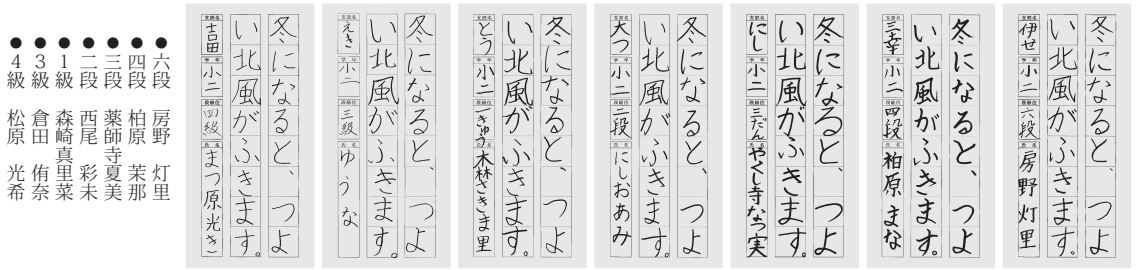 冬になると、つよ
い北風がふきます。
支部名 伊せ 学年 小二 段級位 六段 氏名 房野灯里
冬になると、つよ
い北風がふきます。
支部名 三幸 学年 小二 段級位 四段 氏名 柏原まな
冬になると、つよ
い北風がふきます。
支部名 にし 学年 小二 段級位 三だん 氏名 やくし寺なつ実
冬になると、つよ
い北風がふきます。
支部名 大つ 学年 小二 段級位 二段 氏名 にしおあみ
冬になると、つよ
い北風がふきます。
支部名 とう 学年 小二 段級位 一きゅう 氏名 森さきま里
冬になると、つよ
い北風がふきます。
支部名 えき 学年 小二 段級位 三級 氏名 ゆうな
冬になると、つよ
い北風がふきます。
支部名 吉田 学年 小二 段級位 四級 氏名 まつ原光き
●六段 房野 灯里
●四段 柏原 茉那
●三段 薬師寺夏美
●二段 西尾 彩未
●1級 森崎真里菜
●3級 倉田 侑奈
●4級 松原 光希